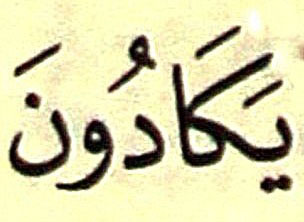 يَكَادُونَ